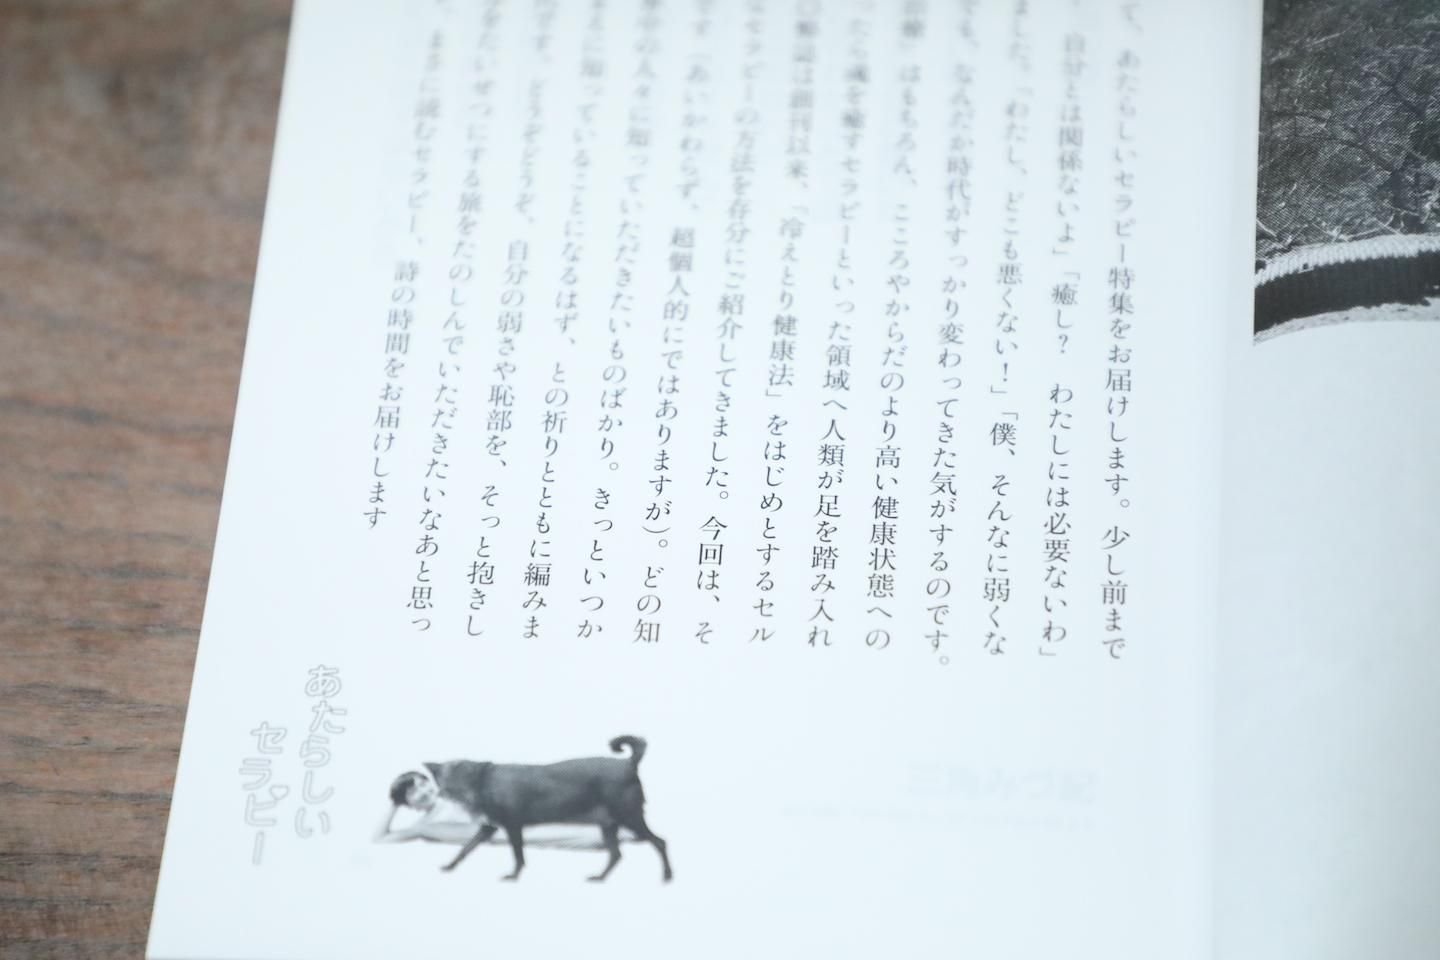 て、あたらしいセラピー特集をお届けします。少し前まで
自分とは関係ないよ」「癒し？　わたしには必要ないわ」
ました。「わたし、どこも悪くない！」「僕、そんなに弱くな
でも、なんだか時代がすっかり変わってきた気がするのです。
治療」はもちろん、こころやからだのより高い健康状態への
ったら魂を癒すセラピーといった領域へ人類が足を踏み入れ
雑誌は創刊以来、「冷えとり健康法」をはじめとするセル
なセラピーの方法を存分にご紹介してきました。今回は、そ
です（あいかわらず、超個人的にではありますが）。どの知
界中の人々に知っていただきたいものばかり。きっといつか
まえに知っていることになるはず、との祈りとともに編みま
です。どうぞどうぞ、自分の弱さや恥部を、そっと抱きし
をたいせつにする旅をたのしんでいただきたいなあと思っ
まさに読むセラピー、詩の時間をお届けします
あたらしい
セラピー